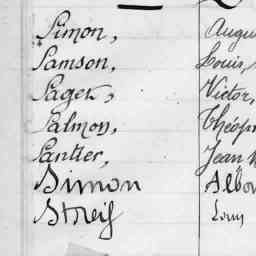 Simon, Augu
Samson, Louis,
Sager, Victor,
Salmon, Théop
Santter, Jean
Simon Albo
Streif Louis